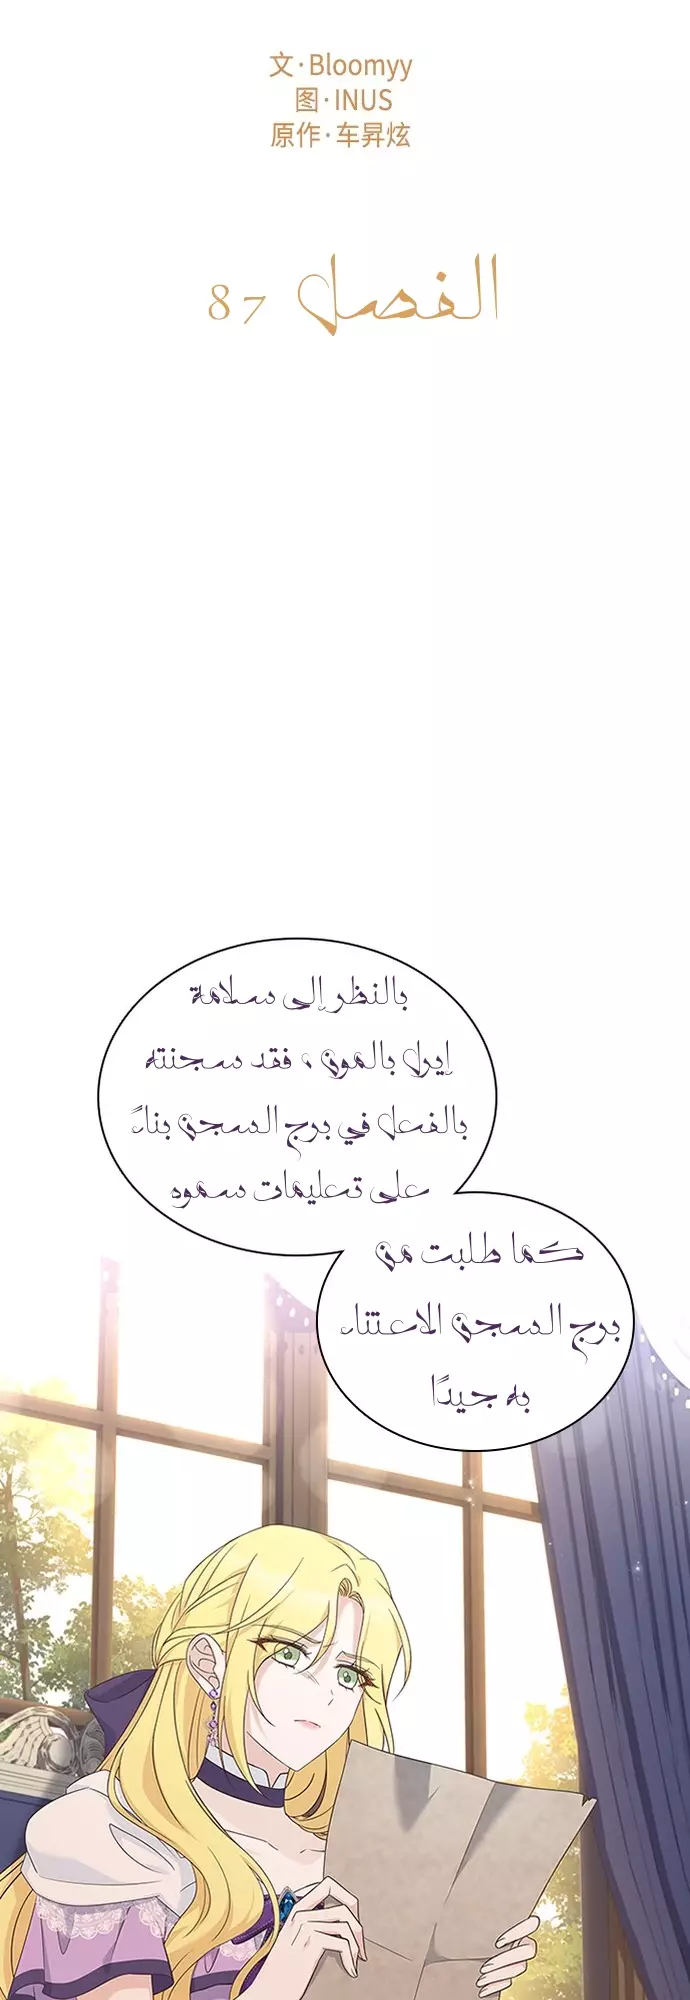 文·Bloomyy
图·INUS
原作·车昇炫
الفصل 87
بالنظر إلى سلامة
إيرل بالمون ، فقد سجنته
بالفعل في برج السجن بناءً
على تعليمات سموه
كما طلبت من
برج السجن الاعتناء
به جيدًا